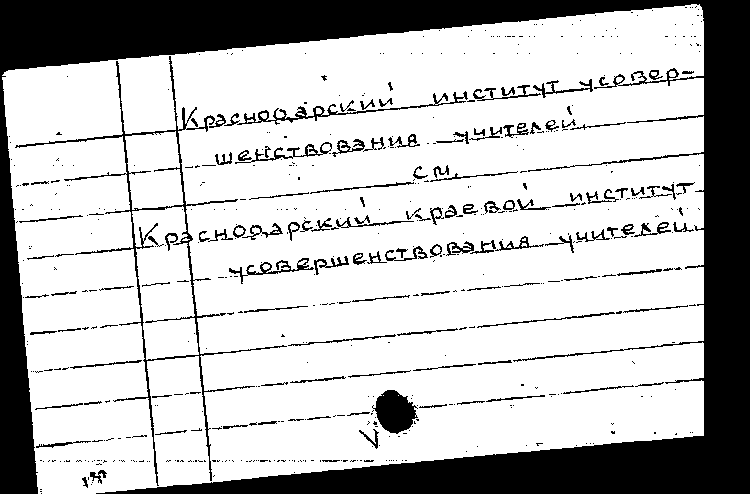 Краснодарский институт усовер-
шенствования учителей.
см.
Краснодарский краевой институт
усовершенствования учителей.